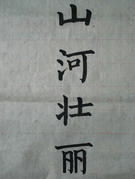 山河壮丽